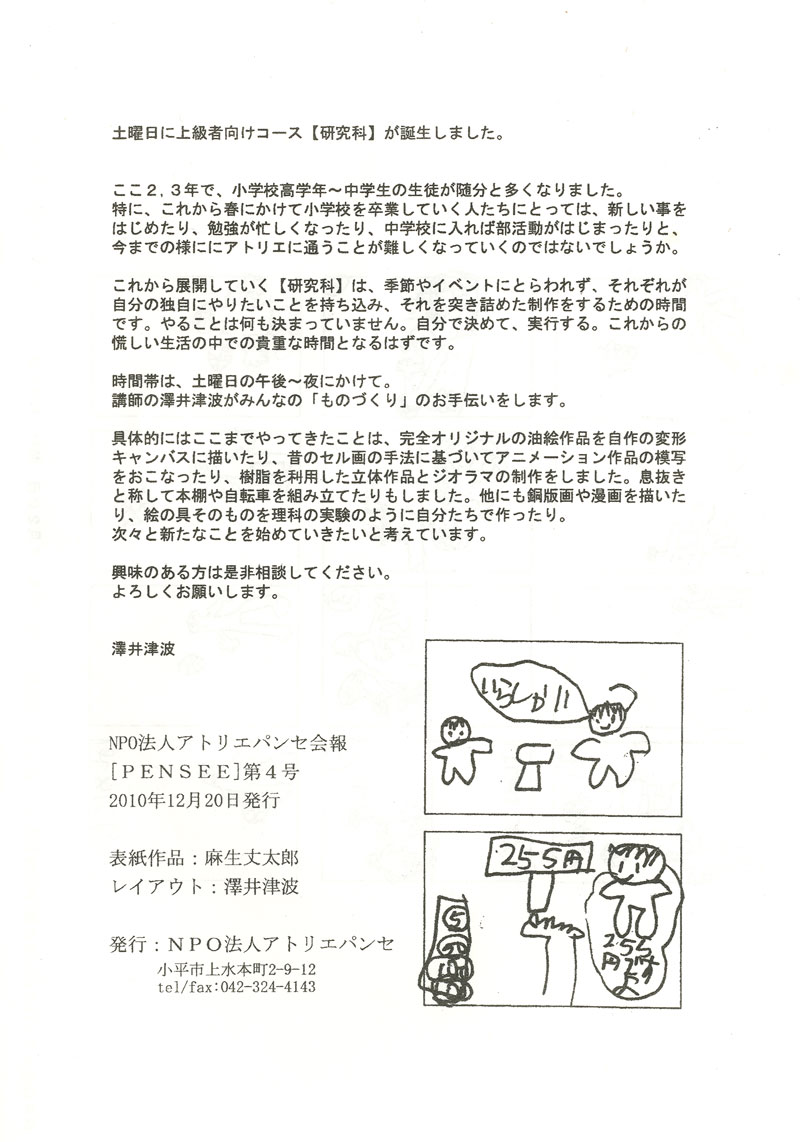 土曜日に上級者向けコース【研究科】が誕生しました。
ここ２，３年で、小学校高学年～中学生の生徒が随分と多くなりました。
特に、これから春にかけて小学校を卒業していく人たちにとっては、新しい事を
はじめたり、勉強が忙しくなったり、中学校に入れば部活動がはじまったりと、
今までの様ににアトリエに通うことが難しくなっていくのではないでしょうか。
これから展開していく【研究科】は、季節やイベントにとらわれず、それぞれが
自分の独自にやりたいことを持ち込み、それを突き詰めた制作をするための時間
です。やることは何も決まっていません。自分で決めて、実行する。これからの
慌しい生活の中での貴重な時間となるはずです。
時間帯は、土曜日の午後～夜にかけて。
講師の澤井津波がみんなの「ものづくり」のお手伝いをします。
具体的にはここまでやってきたことは、完全オリジナルの油絵作品を自作の変形
キャンバスに描いたり、昔のセル画の手法に基づいてアニメーション作品の模写
をおこなったり、樹脂を利用した立体作品とジオラマの制作をしました。息抜き
と称して本棚や自転車を組み立てたりもしました。他にも銅版画や漫画を描いた
り、絵の具そのものを理科の実験のように自分たちで作ったり。
次々と新たなことを始めていきたいと考えています。
興味のある方は是非相談してください。
よろしくお願いします。
澤井津波
NPO法人アトリエパンセ会報
[ＰＥＮＳＥＥ]第４号
2010年12月20日発行
表紙作品：麻生丈太郎
レイアウト：澤井津波
発行：ＮＰＯ法人アトリエパンセ
小平市上水本町2-9-12
tel/fax:042-324-4143
いらしゃい
255円
5
255
円